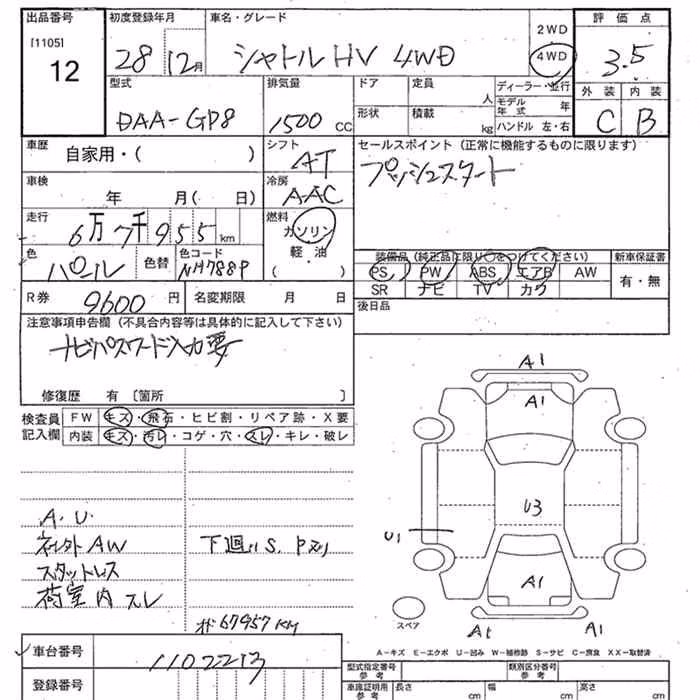 出品番号 初度登録年月 車名・グレード 2WD 評価点
[1105] 12 28 12月 シャトルHV 4WD 4WD 3.5
型式 排気量 ドア 定員 人 ディーラー・並行 外装 内装
DAA-GP8 1500 CC 形状 積載 kg モデル年式 年 ハンドル 左・右 C B
車歴 自家用・( ) シフト AT セールスポイント (正常に機能するものに限ります)
プッシュスタート
車検 年 月( 日) 冷房 AAC
走行 6万7千955km 燃料 ガソリン 軽油 ( )
色 パール 色替 色コード NH788P
装備品 (純正品に限り○をつけてください) 新車保証書
PS PW ABS エアB AW 有・無
SR ナビ TV カワ
R券 9600円 名変期限 月 日 後日品
注意事項申告欄 (不具合内容等は具体的に記入して下さい)
ナビパスワード入力要
修復歴 有 〔箇所 〕
検査員記入欄 FW キズ・飛石・ヒビ割・リペア跡・X要
内装 キズ・汚レ・コゲ・穴・スレ・キレ・破レ
A1
A1
U3
U1
A1
A1 A1
スペア
A.U.
ネレ外AW 下廻りS.
スタットレス
荷室内スレ
67957KM
A-キズ E-エクボ U-凹み W-補修跡 S-サビ C-腐食 XX-取替済
車台番号 1102213
登録番号
型式指定番号 参考 類別区分番号 参考
車庫証明用 参考 長さ cm 幅 cm 高さ cm